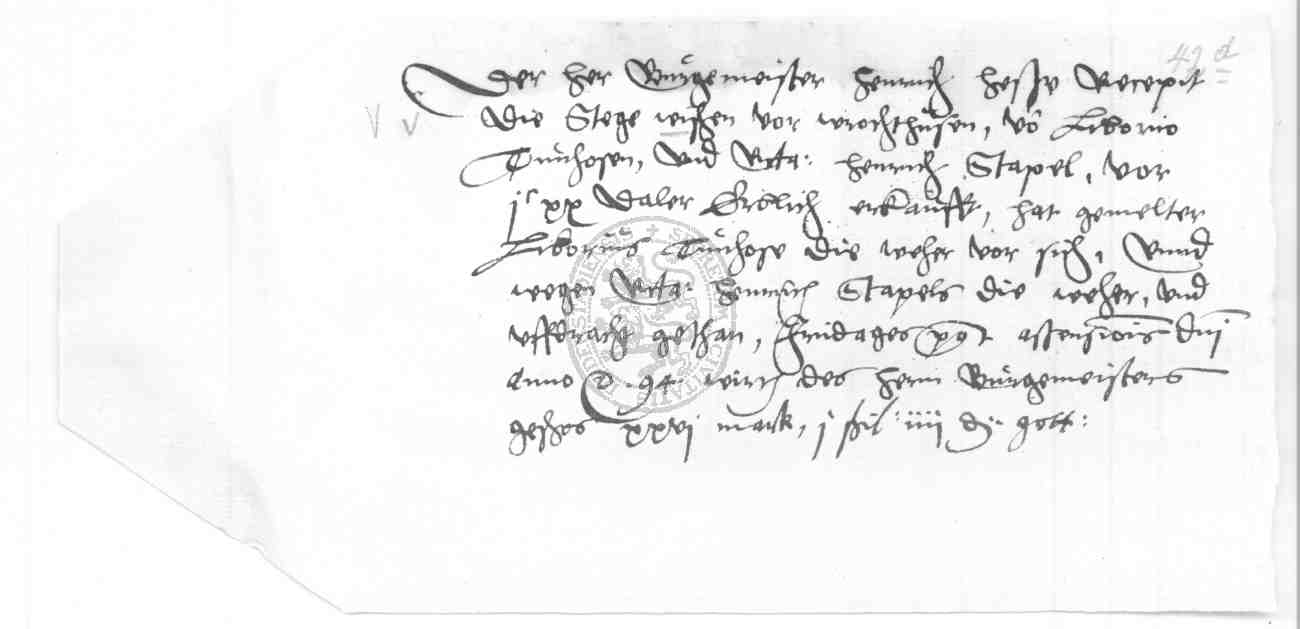 49 d
Der her Burgemeister Henrich Hesse Recepit
die Stege wishen vor wrochthusen, vo Liborio
Tunhosen, vnd Henrich Stapel, vor
jc xx Daler Erblich erkaufft, hat gemelter
Liborius Tunhose die weher vor sich, Vnnd
wegen Henrich Stapels die weher, vnd
vffdracht gethan, Fridages post ascensiois dnj
Anno D. 94. wirtt des hern Burgemeisters
geschos xxvj mark, j shil: iiij d gott:
SECRETA CIVITATIS